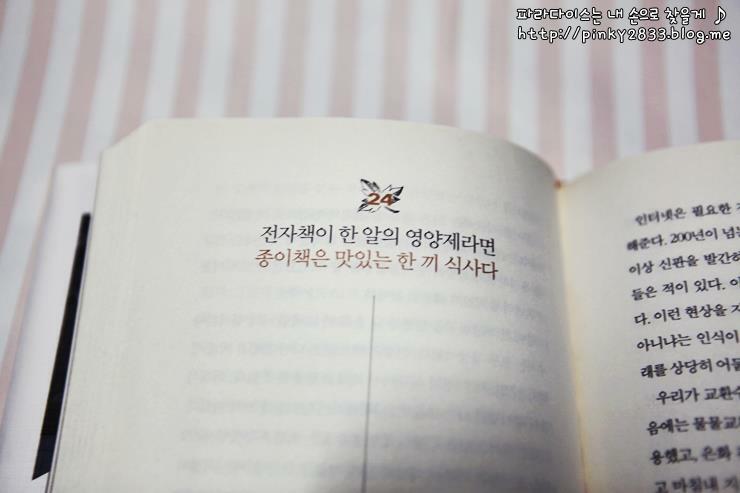 파라다이스는 내 손으로 찾을게 ♪
http://pinky2833.blog.me
24
전자책이 한 알의 영양제라면
종이책은 맛있는 한 끼 식사다
인터넷은 필요한
해준다. 200년이 넘는
이상 신판을 발간하
들은 적이 있다.
다. 이런 현상을
아니냐는 인식이
래를 상당히 어둡
우리가 교환수
음에는 물물교
용했고, 은화
고 마침내